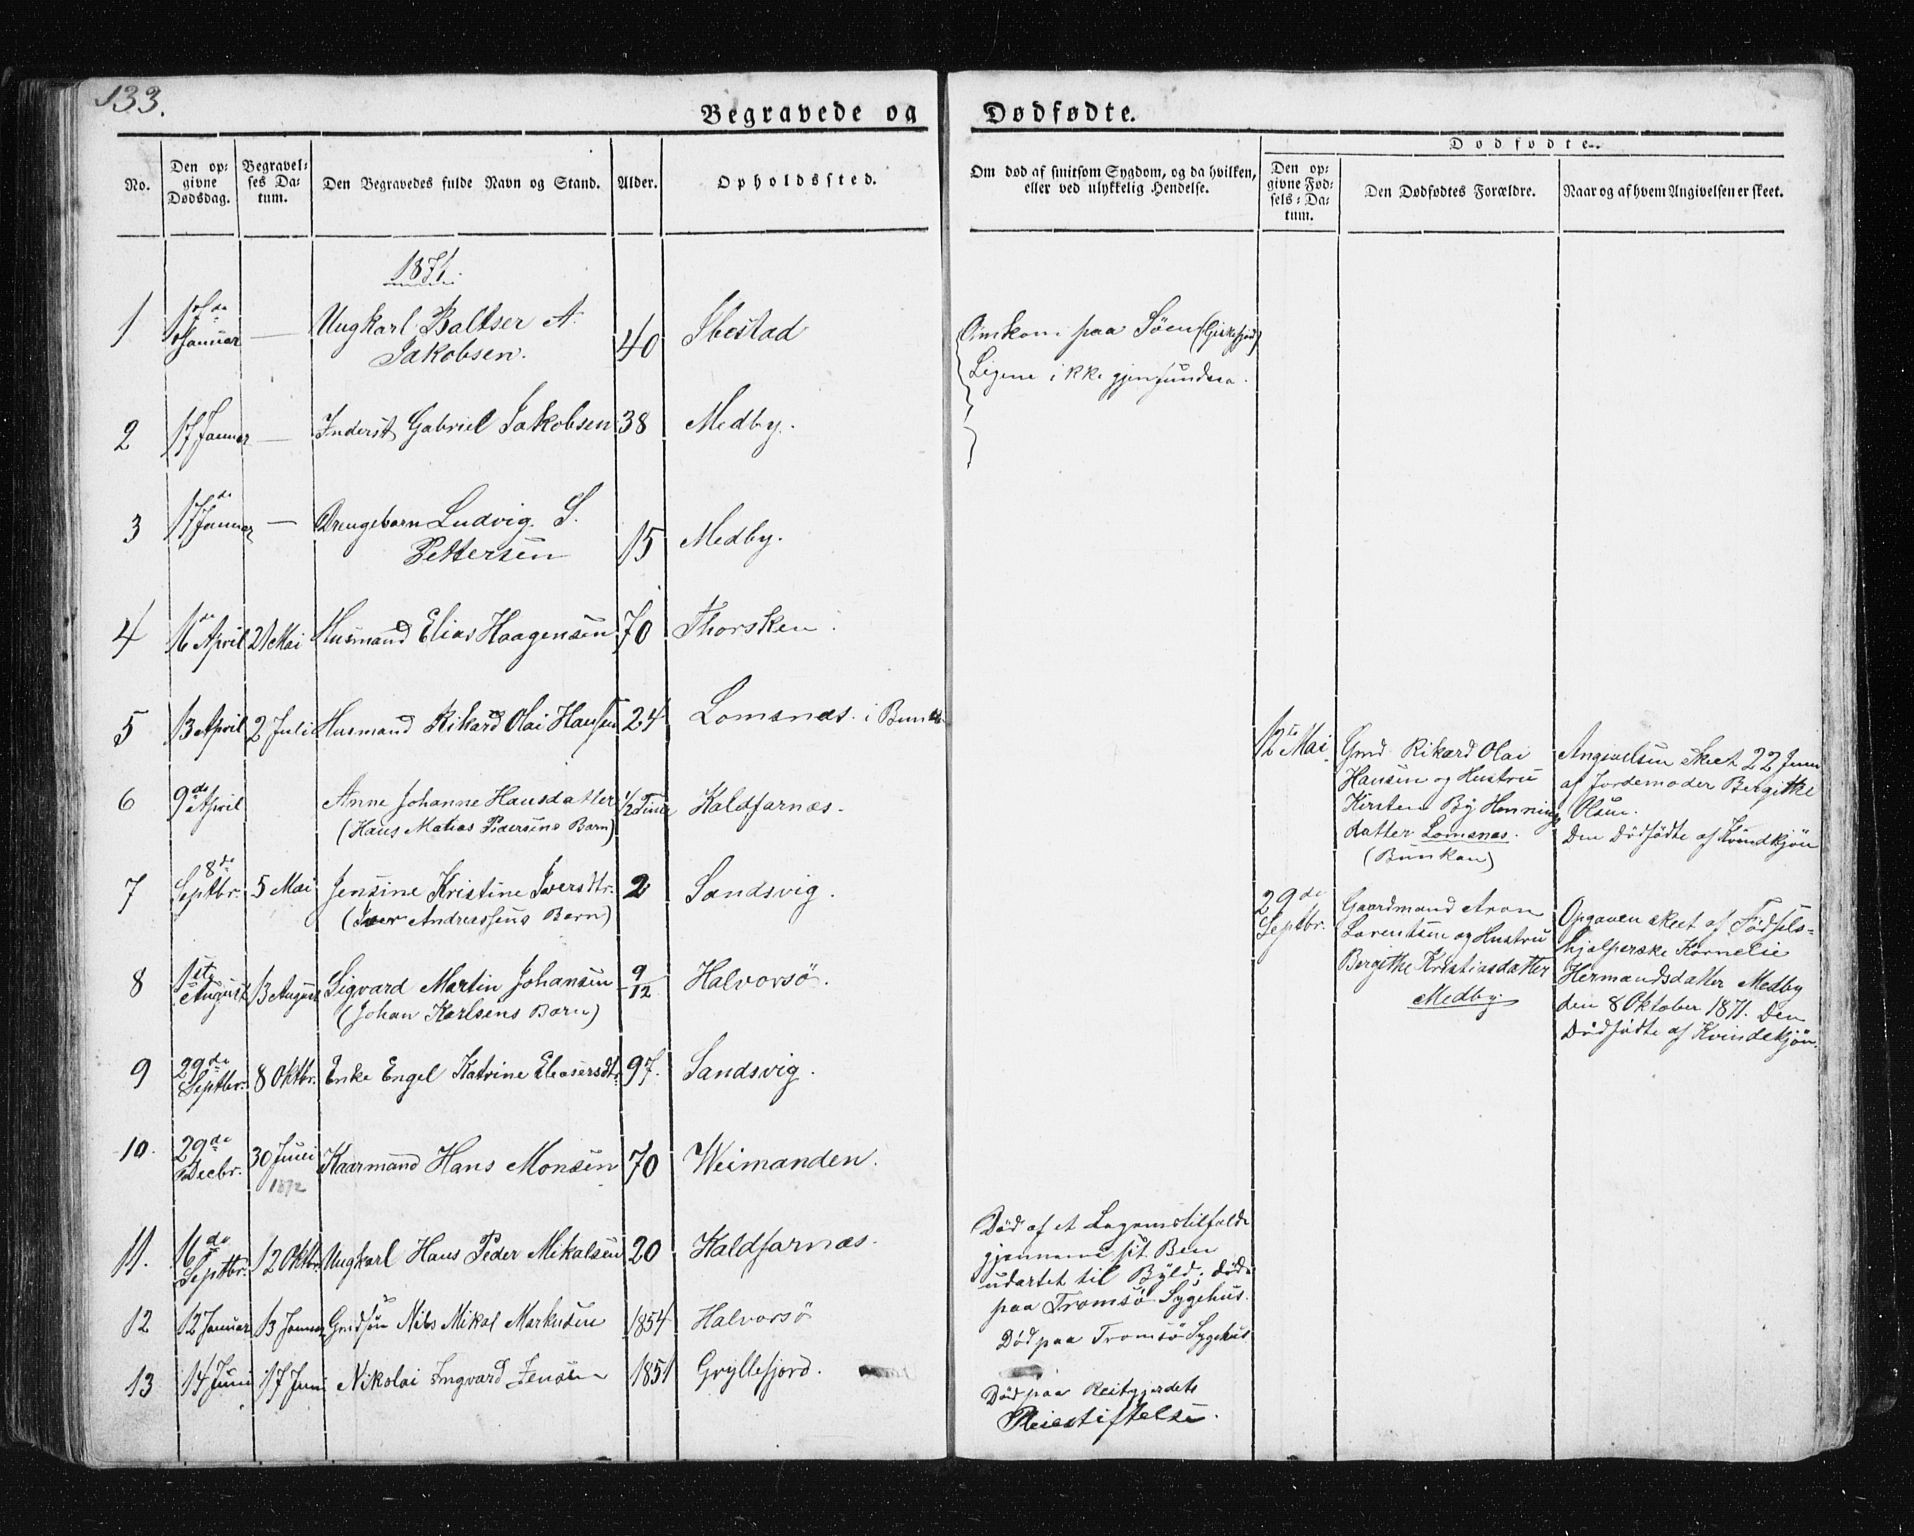 133.
Begravede og Dødfødte.
No.
Den opgivne Dødsdag.
Begravelses Datum.
Den Begravedes fulde Navn og Stand.
Alder.
Opholdssted.
Om død af smitsom Sygdom, og da hvilken, eller ved ulykkelig Hendelse.
Dødfødte.
Den opgivne Fødsels-Datum.
Den Dødfødtes Forældre.
Naar og af hvem Angivelsen er skeet.
1871.
1 17de Januar — Ungkarl Baltser A. Jakobsen. 40 Ibestad Omkom paa Søen
Ligene ikke
2 17 Januar — Inderst Gabriel Jakobsen 38 Medby.
3 17de Januar — Drengebarn Ludvig S. Pettersen 15 Medby.
4 16de April 21 Mai Husmand Elias Haagensen 70 Thorsken.
5 13 April 2 Juli Husmand Rikard Olai Hansen 24 Lomsnæs i
6 9de April Anne Johanne Hansdatter 1/2 Time Kaldfarnæs.
(Hans Matias Pedersens Barn)
7 8de Septbr. 5 Mai Jensine Kristine Iversdtr. 2 Sandsvig.
(Iver Andreassens Barn)
8 1st August 13 August Sigvard Martin Johansen 9/12 Halvorsö.
(Johan Karlsens Barn)
9 29de Septbr. 8 Oktbr. Enke Engel Katrine Eleasersdtr. 97. Sandsvig.
10. 29de Decbr. 30 Juni 1872 Kaarmand Hans Monsen 70 Weimanden.
11. 16de Septbr. 12 Oktbr. Ungkarl Hans Peder Mikalsen 20 Kaldfarnæs.
Død af et Legemstilfælde
gjennem sit Ben
udartet til Byld; døde
paa Tromsö Sygehus.
12 12 Januar 13 Januar Nils Mikal Markusen 1854 Halvorsö
Død paa Tromsö Sygehus
13 14 Juni 17 Juni Nikolai Ingvard Jensen 1851 Gryllefjord.
Død paa Reitgjerdets
Pleiestiftelse.
12te Mai. Gmd Rikard Olai
Hansen og Hustru
Kirsten By Hennings
datter Lomsnæs.
(Bunkan)
Angivelsen skeet 22 Juni
af Jordemoder Bergitte
Olsen.
Den Dødfødte af Kvindkjön
29de Septbr. Gaardmand Aron
Lorentsen og Hustru
Bergithe Kristiansdatter
Medby.
Opgaven skeet af Fødsels-
hjelperske Kornelie
Hermandsdatter Medby
den 8 Oktober 1871. Den
Dødfødte af Kvindekjön.